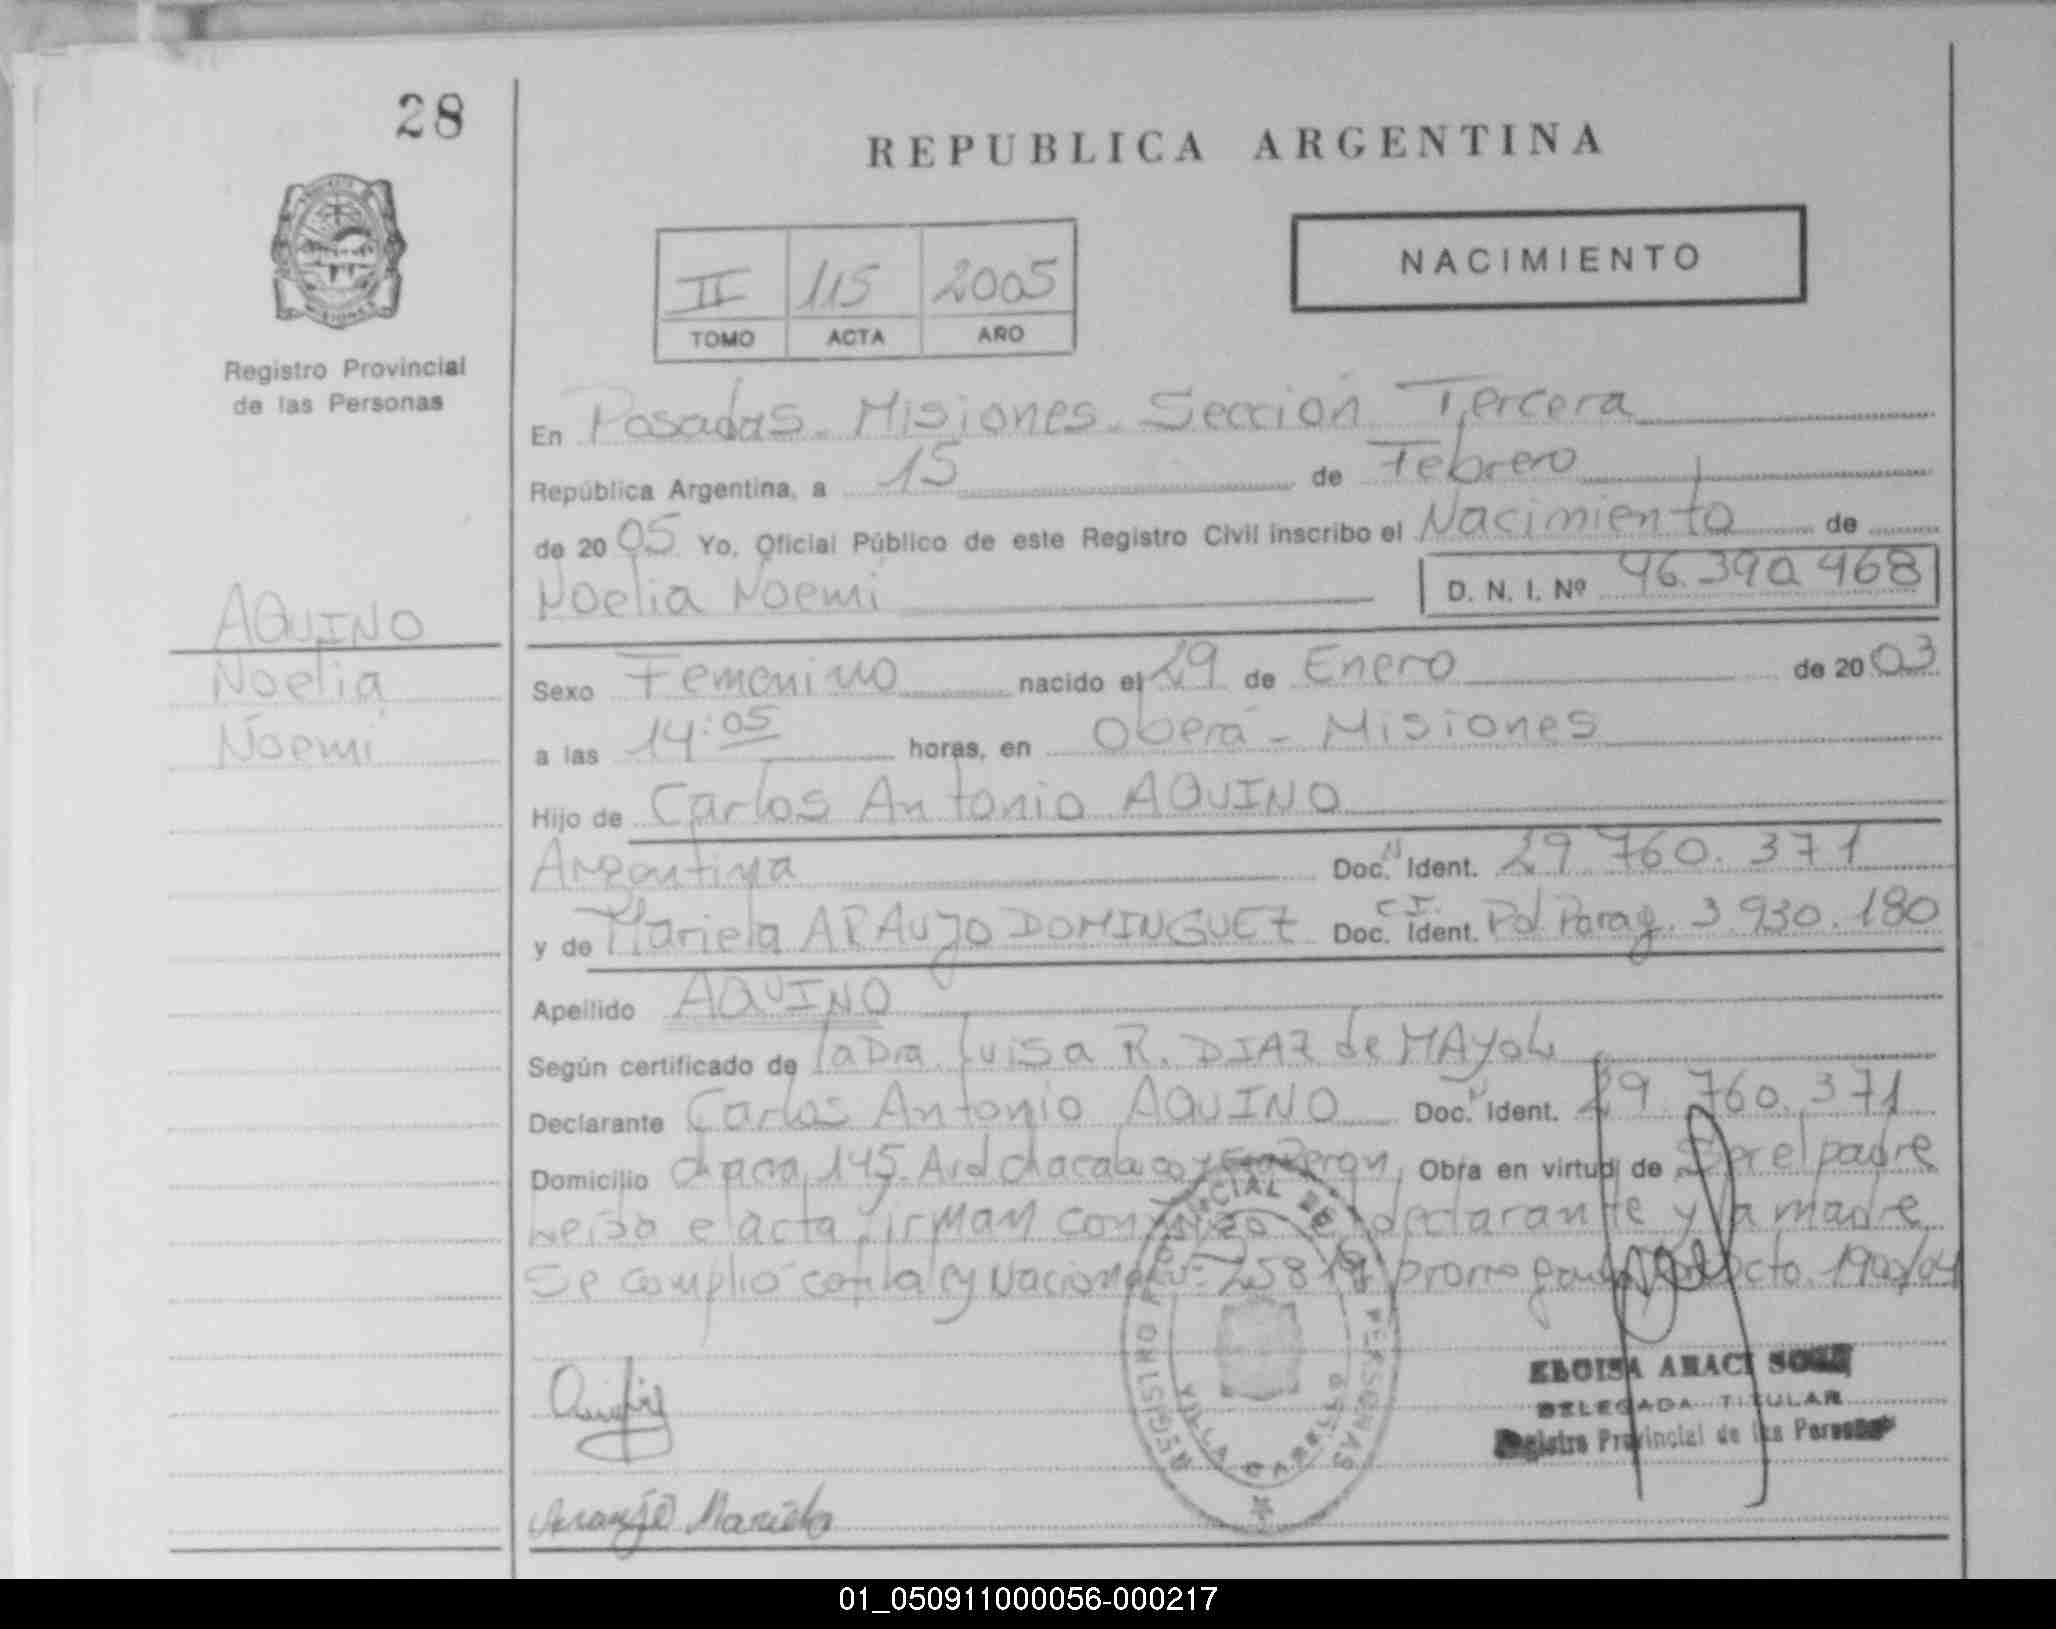 28
REPUBLICA ARGENTINA
NACIMIENTO
II 115 2005
TOMO ACTA AÑO
Registro Provincial
de las Personas
En Posadas - Misiones - Sección Tercera
República Argentina, a 15 de Febrero
de 2005 Yo, Oficial Público de este Registro Civil inscribo el Nacimiento de
Noelia Noemi D. N. I. Nº 46.390.468
AQUINO
Noelia
Noemi
Sexo Femenino nacido el 29 de Enero de 2003
a las 14:05 horas, en Oberá - Misiones
Hijo de Carlos Antonio AQUINO
Argentina Doc. N Ident. 29.760.371
y de Mariela ARAUJO DOMINGUEZ Doc. C.I. Ident. Pol. Parag. 3.930.180
Apellido AQUINO
Según certificado de la Dra. Luisa R. DIAZ de MAYOL
Declarante Carlos Antonio AQUINO Doc. N Ident. 29.760.371
Domicilio chacra 145. Avd chacabuco y Eva Peron, Obra en virtud de Ser el padre
Leida el acta firman conmigo el declarante y la madre
Se cumplió con la ley Nacional Nº 25819 Dcto. 1900/04
REGISTRO PROVINCIAL DE LAS PERSONAS
VILLA CABELLO
ELOISA ARACI
DELEGADA TITULAR
Registro Provincial de las Personas
Araujo Mariela
01_050911000056-000217